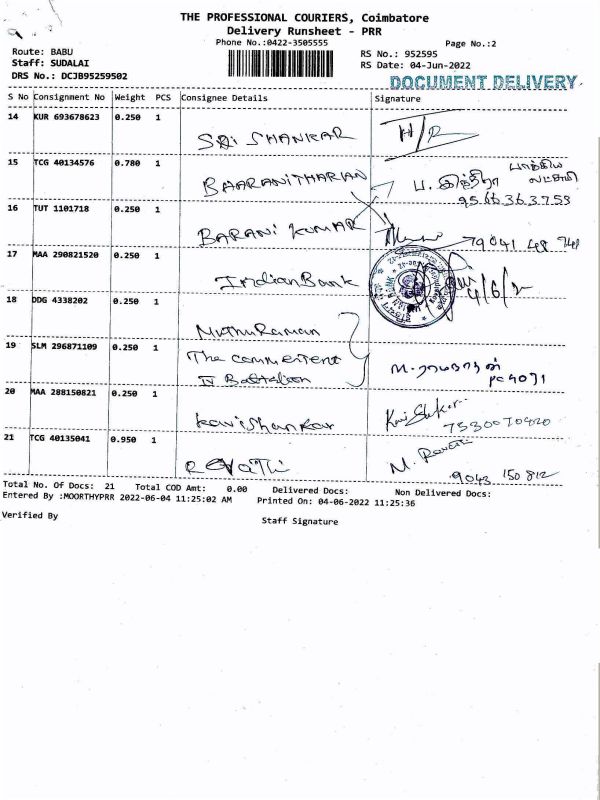 THE PROFESSIONAL COURIERS, Coimbatore
Delivery Runsheet - PRR
Phone No.:0422-3505555
Page No.:2
Route: BABU
Staff: SUDALAI
DRS No.: DCJB95259502
RS No.: 952595
RS Date: 04-Jun-2022
DOCUMENT DELIVERY
S No Consignment No Weight PCS Consignee Details Signature
14 KUR 693678623 0.250 1
SRI SHANKAR
15 TCG 40134576 0.780 1
BAARANITHARAN
ப. இந்திரா
95 66 36 37 53
16 TUT 1101718 0.250 1
BARANi KUMAR
79041 48 748
17 MAA 290821520 0.250 1
Indian Bank
4/6/2
18 DDG 4338202 0.250 1
MuthuRaman
19 SLM 296871109 0.250 1
The commentent
IV Battalion
PC 4071
20 MAA 288150821 0.250 1
kavishankar
7530070420
21 TCG 40135041 0.950 1
REVATHI
M. Revathi
9043 150 812
Total No. Of Docs: 21 Total COD Amt: 0.00 Delivered Docs: Non Delivered Docs:
Entered By :MOORTHYPRR 2022-06-04 11:25:02 AM Printed On: 04-06-2022 11:25:36
Verified By
Staff Signature